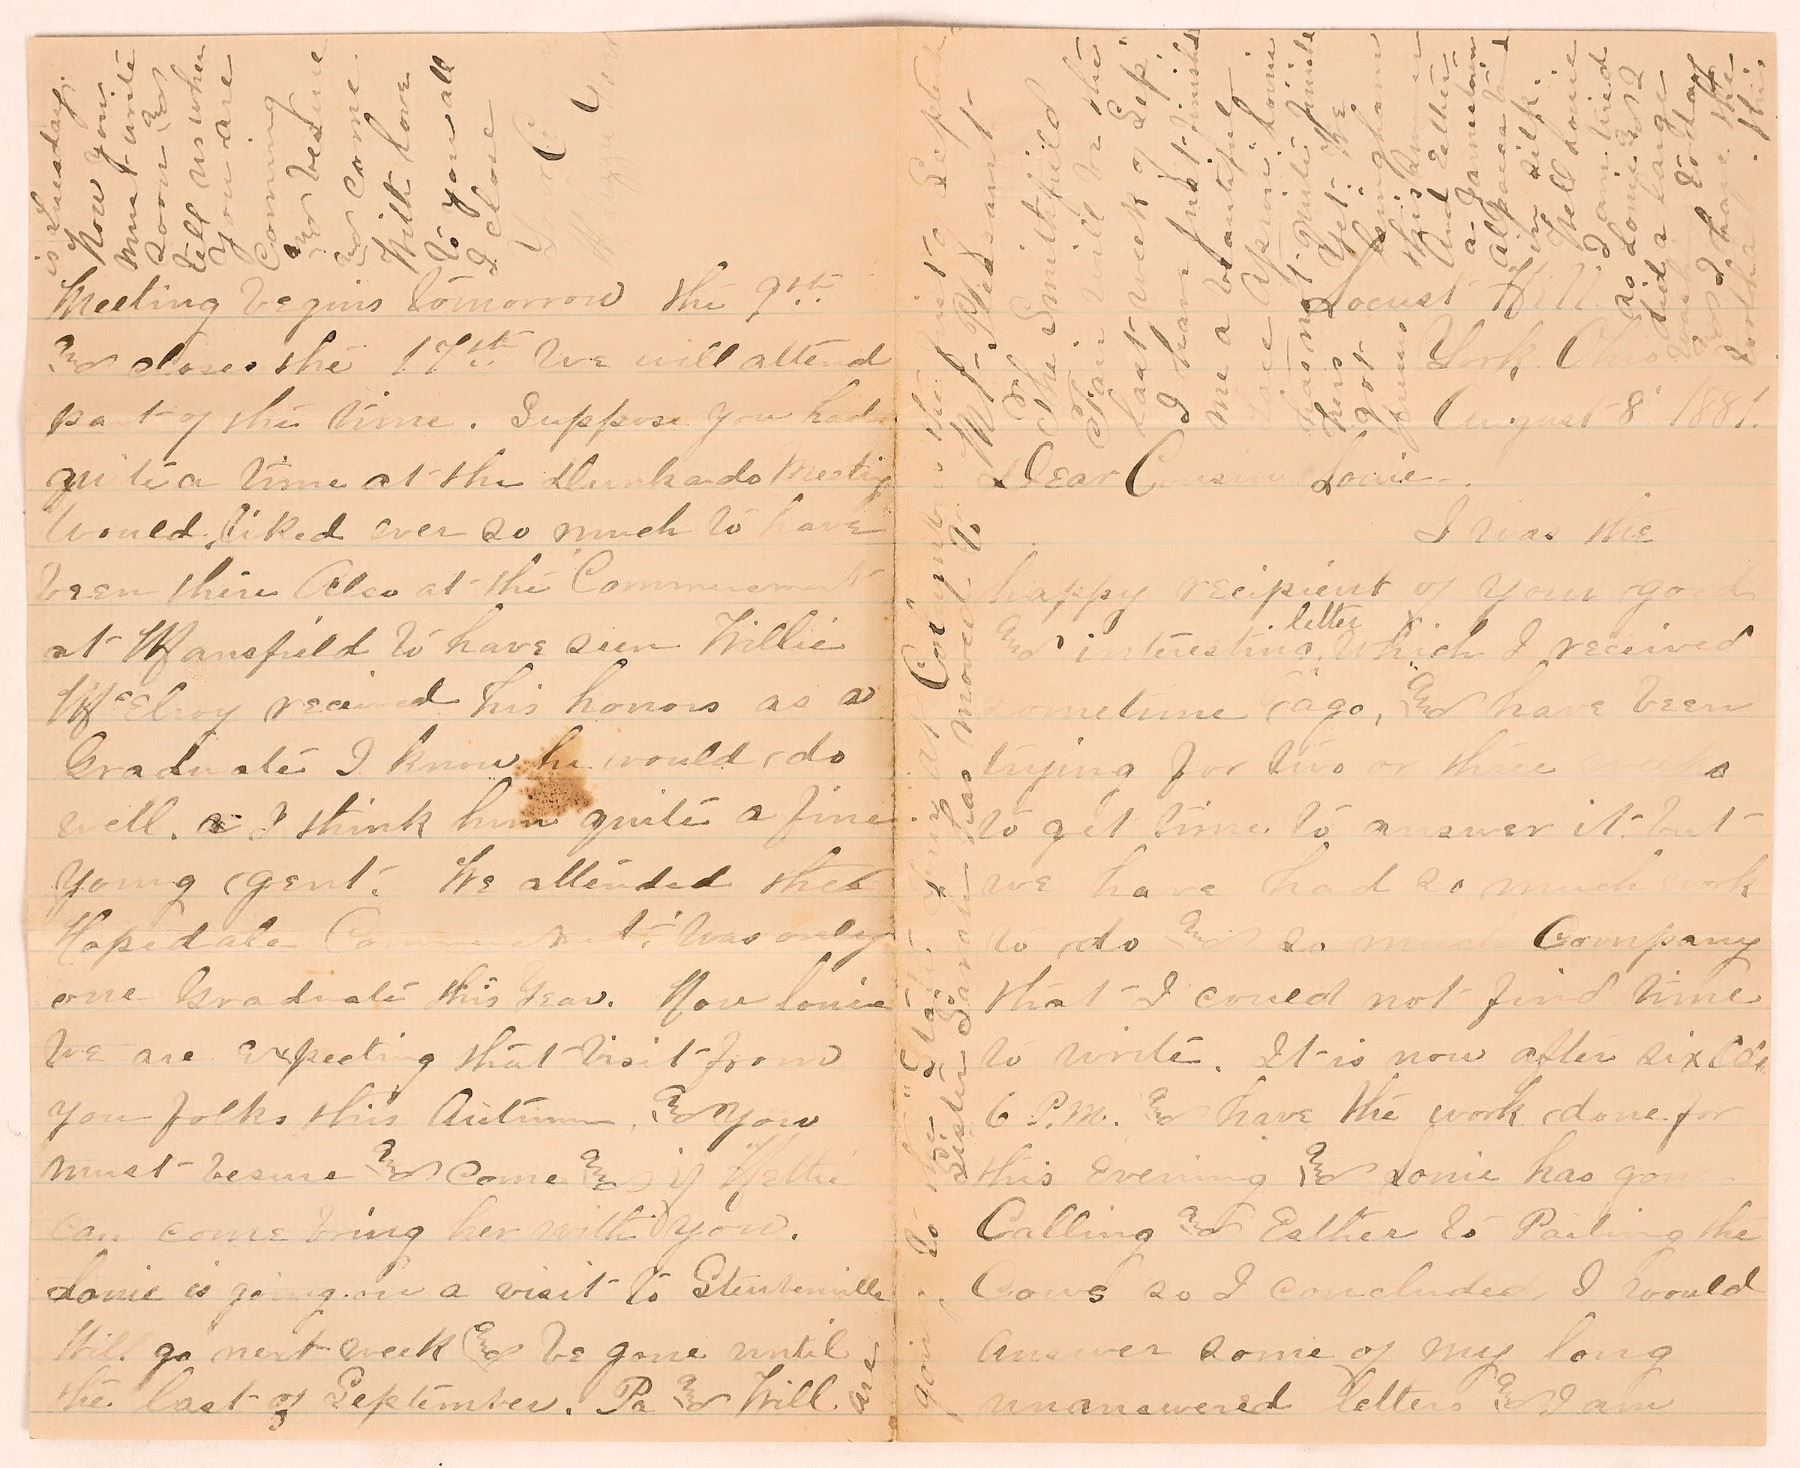 Locust Hill
York, Ohio
August 8 1881.
Dear Cousin Louie.
I was the
happy recipient of your good
and interesting letter, which I received
sometime ago, and have been
trying for two or three weeks
to get time to answer it but
we have had so much work
to do and so much Company
that I could not find time
to write. It is now after six
6 P.M. and have the work done for
this evening and Louie has gone
Calling and Esther to Pailing the
Cows so I concluded I would
answer some of my long
unanswered letters and I am
Meeting begins tomorrow the 9th
and closes the 17th We will attend
part of the time. Suppose you had
quite a time at the Dunkards Meeting
Would liked ever so much to have
been there Also at the Commencement
at Mansfield to have seen Willie
McElroy received his honors as a
Graduate I know he would do
well. I think him quite a fine
young gent. We attended the
Hopedale Commencement was only
one Graduate this year. Now Louie
we are expecting that visit from
you folks this Autumn, and you
must besure and come and if Hettie
can come bring her with you.
Louie is going on a visit to Steubenville
Will go next week and be gone until
the last of September. Pa and Will are
going to the "State Fair" at Columbus the first of September
Sister Samon has moved to Mt. Pleasant
The Smithfield
Fair will be the
last week of Sep.
I have just finished
me a beautiful
apron Louie
has not quite finished
hers yet. We
got
gingham
this summer
And Esther
a
Alpaca trimed
in silk.
Well Louie
I am tired
as Louie and I
did a large
wash today
and I have the
this
is Tuesday.
Now you
must write
soon and
tell us when
you are
Coming
and besure
and come.
With love
to you all
I close
Your Cousin